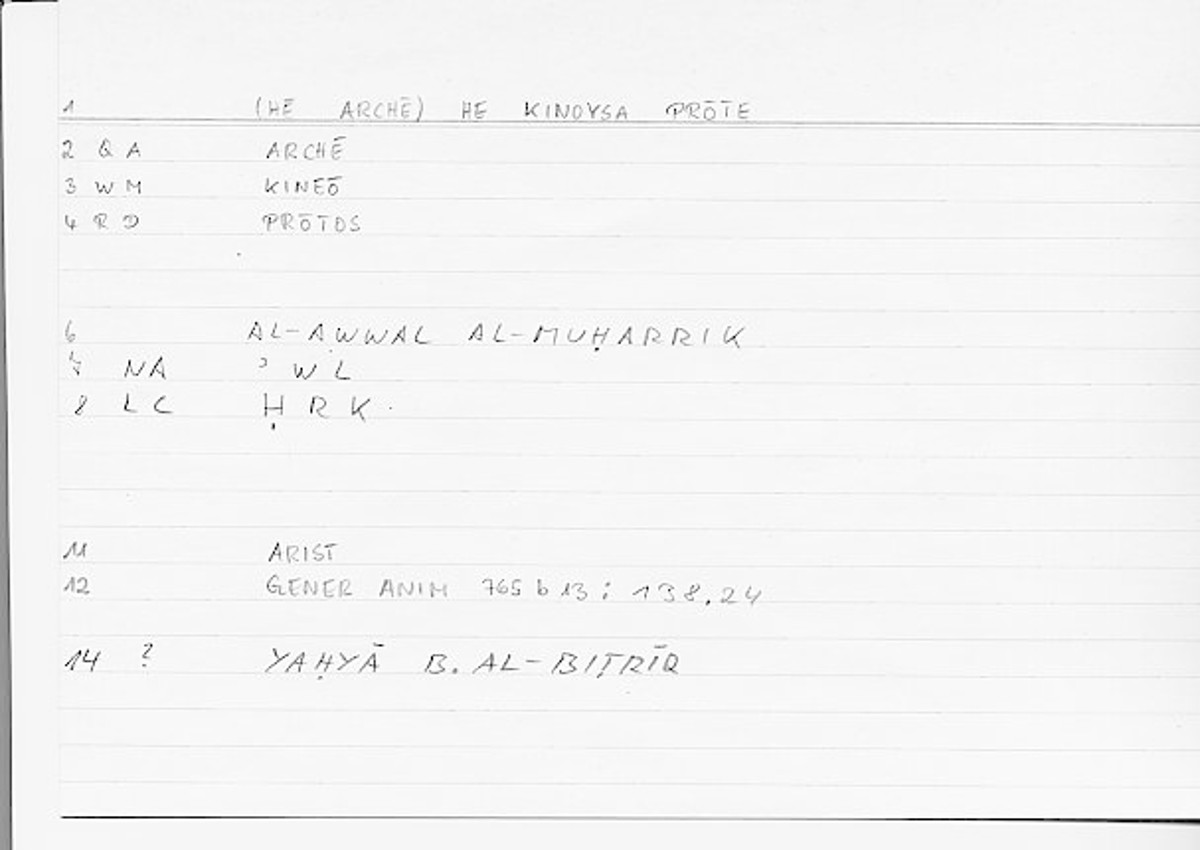 1 (HĒ ARCHĒ) HE KINOYSA PRŌTE
2 Q A ARCHĒ
3 W M KINEŌ
4 R D PRŌTOS
6 AL-AWWAL AL-MUḤARRIK
7 NA ʾ W L
8 LC Ḥ R K
11 ARIST
12 GENER ANIM 765 b 13 ; 138.24
14 ? YAḤYĀ B. AL-BIṬRĪQ